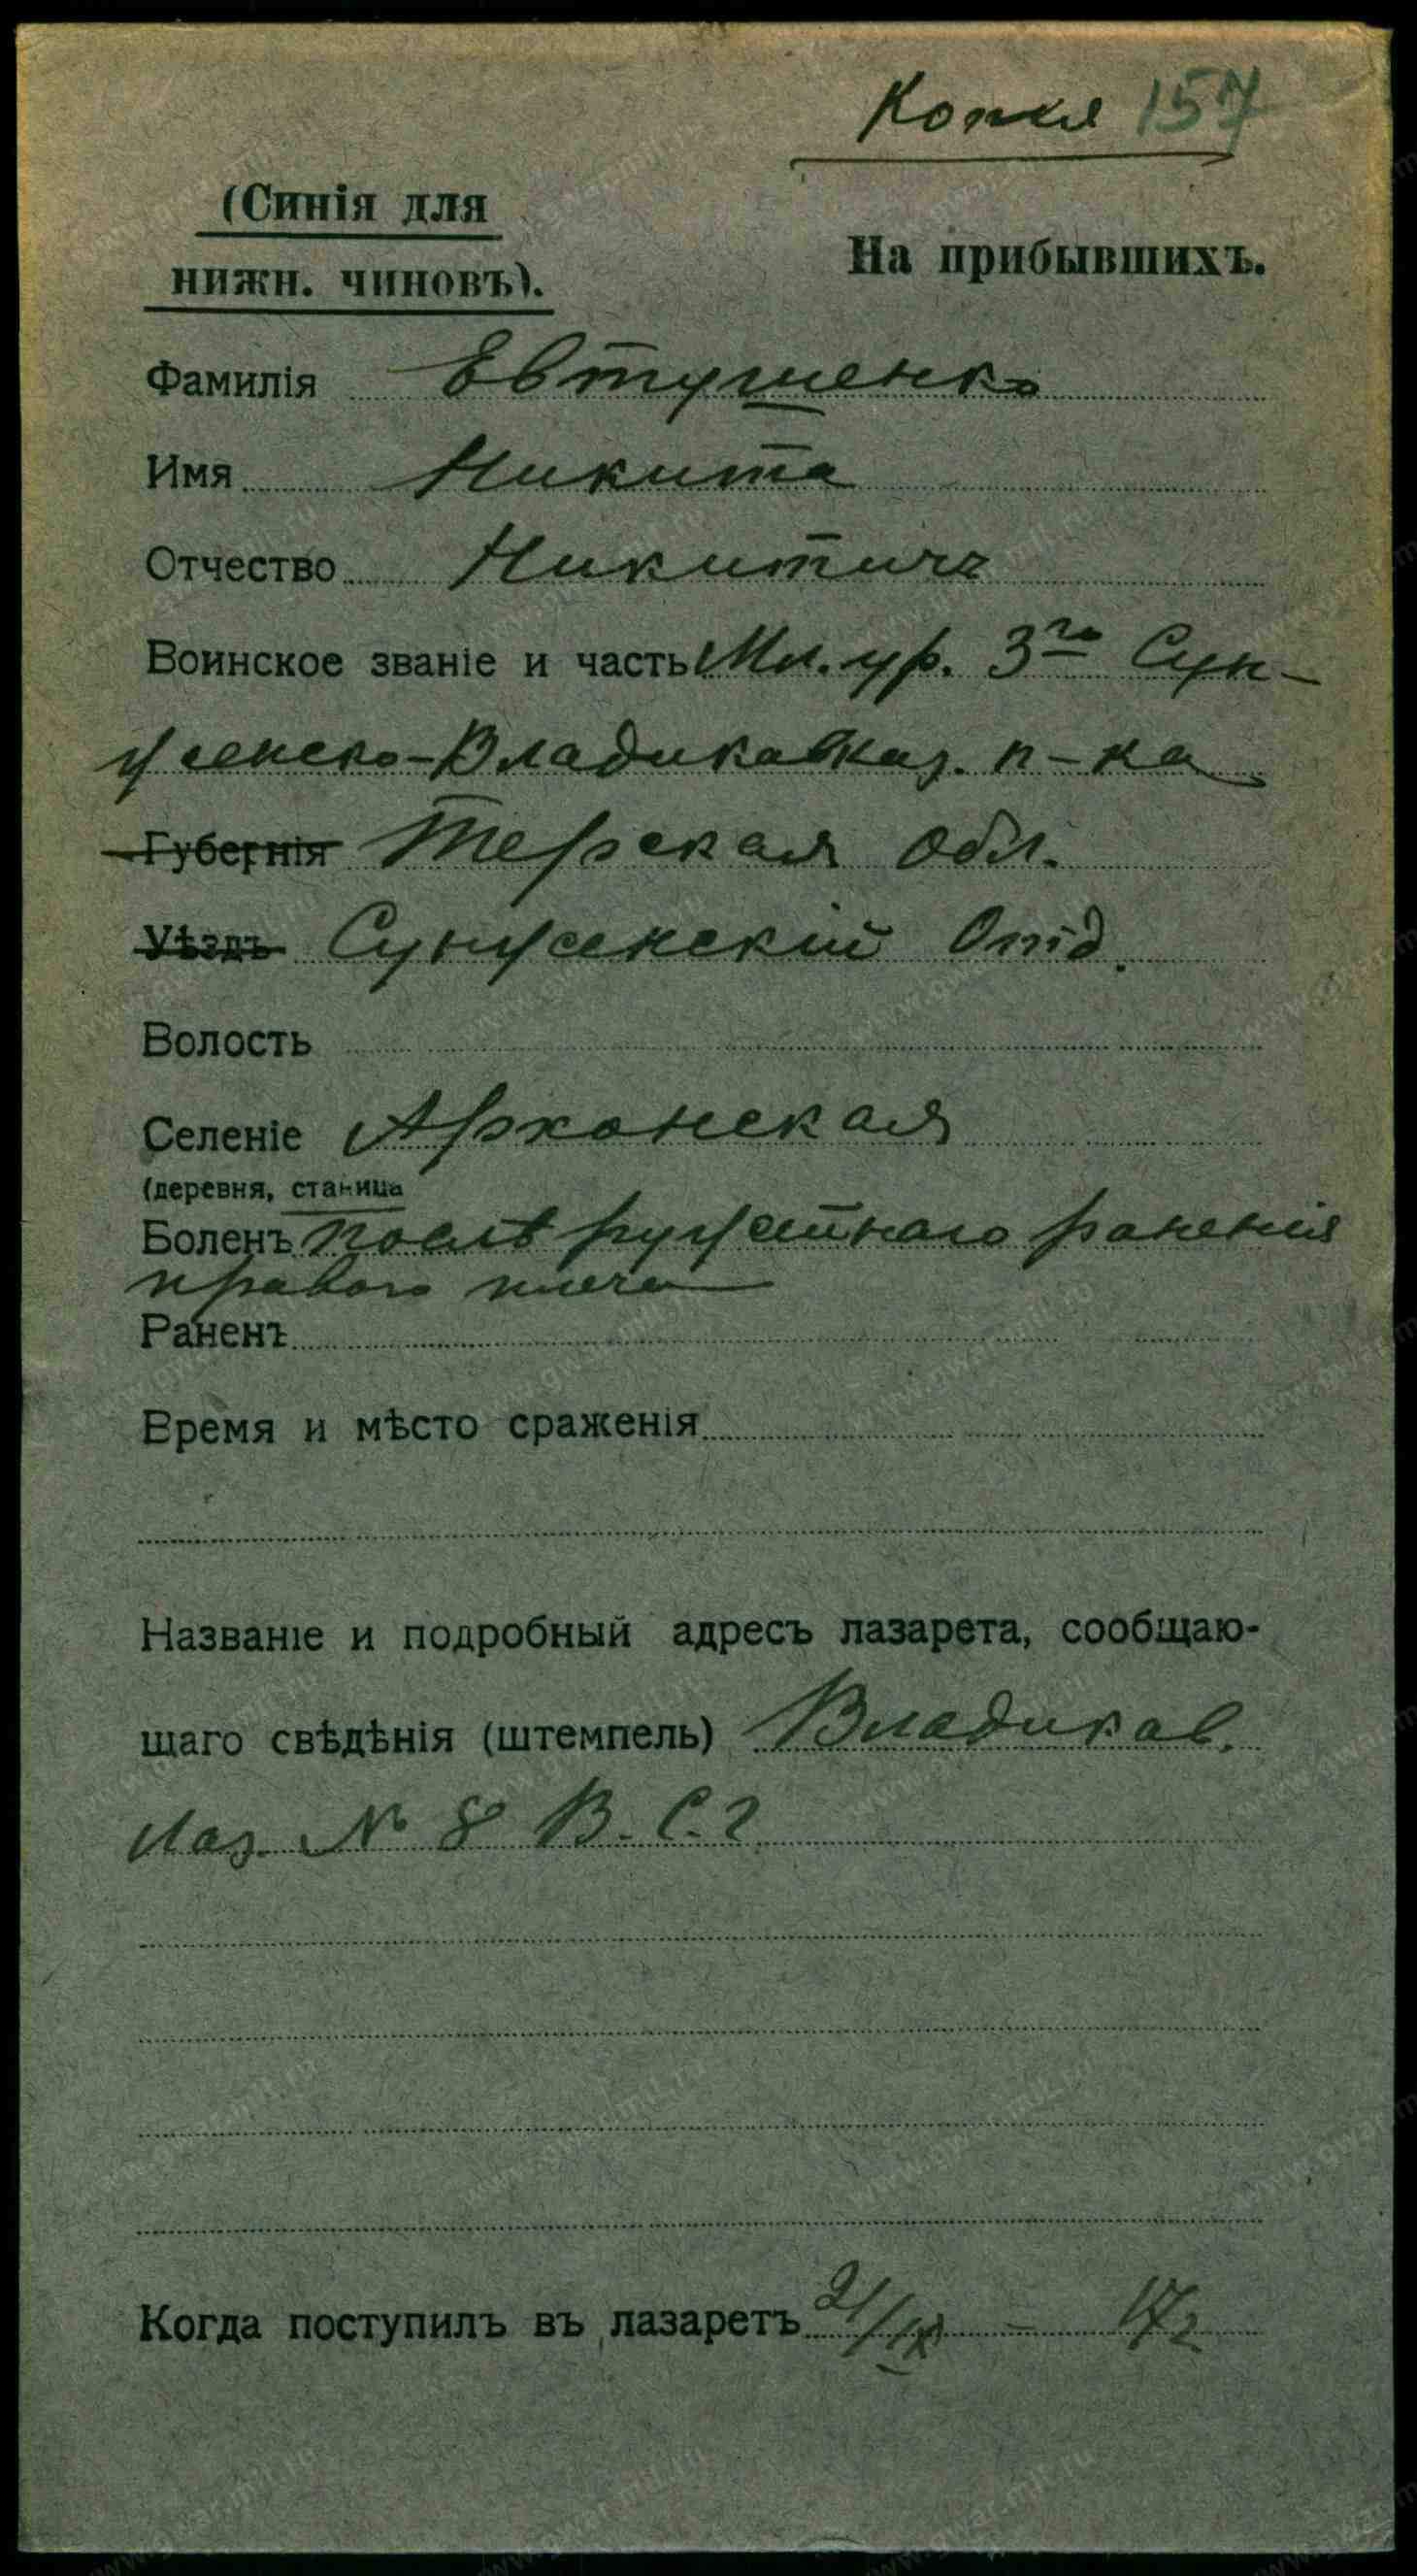 Копия 157
(Синія для
нижн. чиновъ).
На прибывшихъ.
Фамилія Евтушенко
Имя Никита
Отчество Никитичъ
Воинское званіе и часть Мл. ур. 3го Сун-
женско-Владикавказ. п-ка
Губернія Терская обл.
Уѣздъ Сунженскій Отд.
Волость
Селеніе Архонская
(деревня, станица
Боленъ послѣ ружейнаго раненія
праваго плеча
Раненъ
Время и мѣсто сраженія
Названіе и подробный адресъ лазарета, сообщаю-
щаго свѣдѣнія (штемпель) Владикав.
Лаз. № 8 В. С. Г
Когда поступилъ въ лазаретъ 21/IX – 17 г